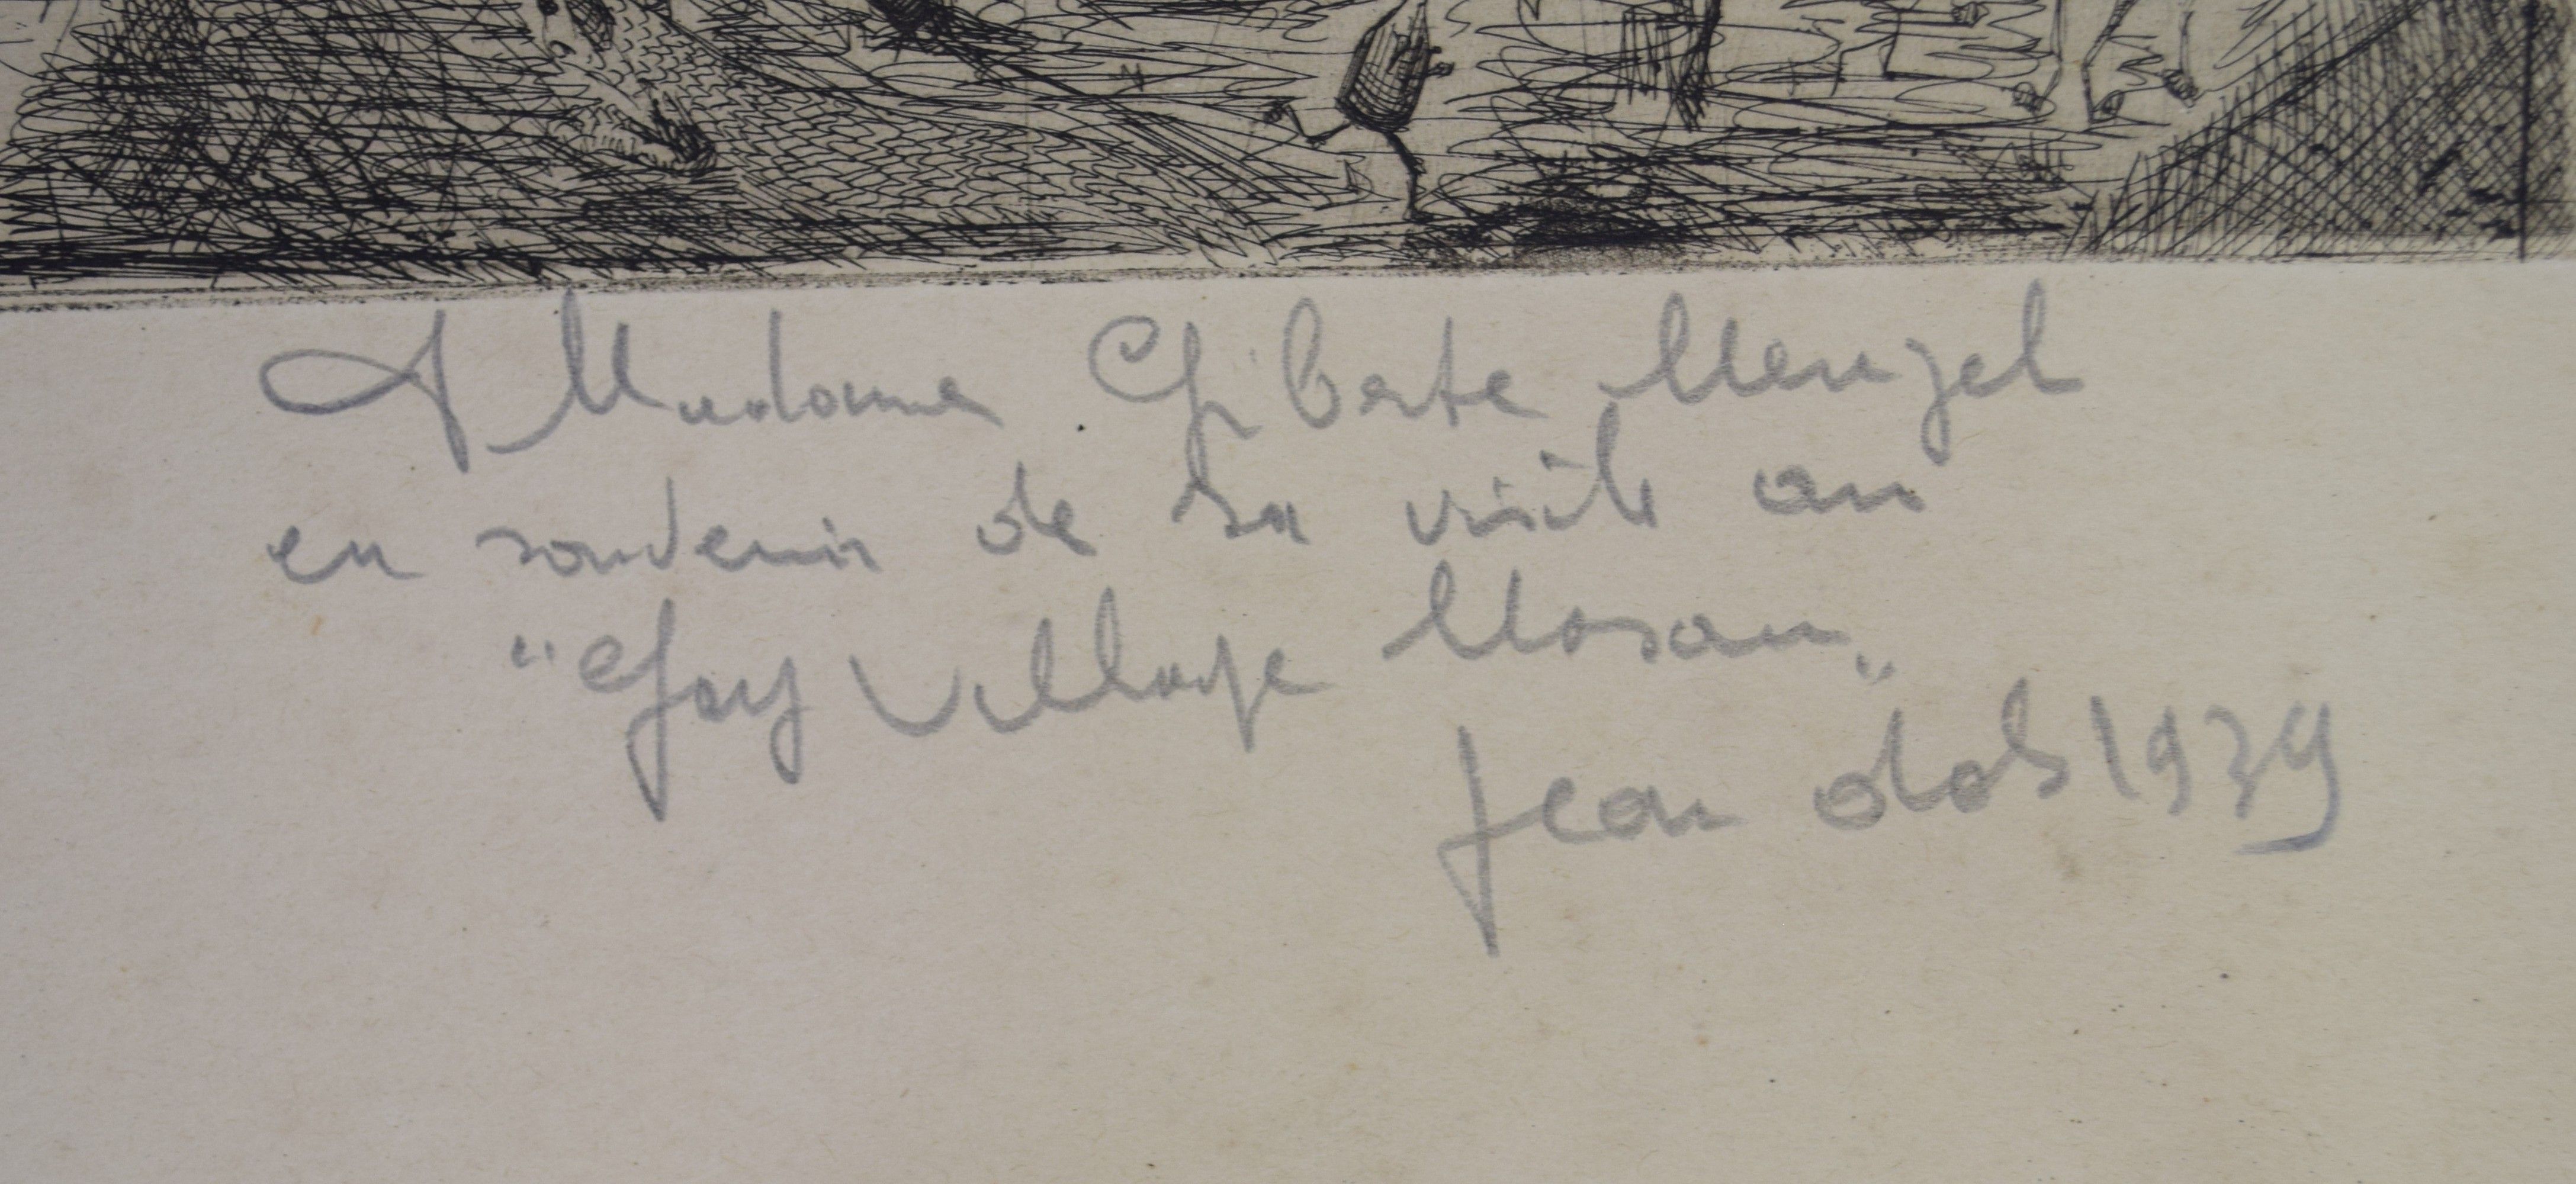 A Madame Gilberte Menzel
en souvenir de sa visite au
"Gay Village Mosan"
Jean Dols 1939